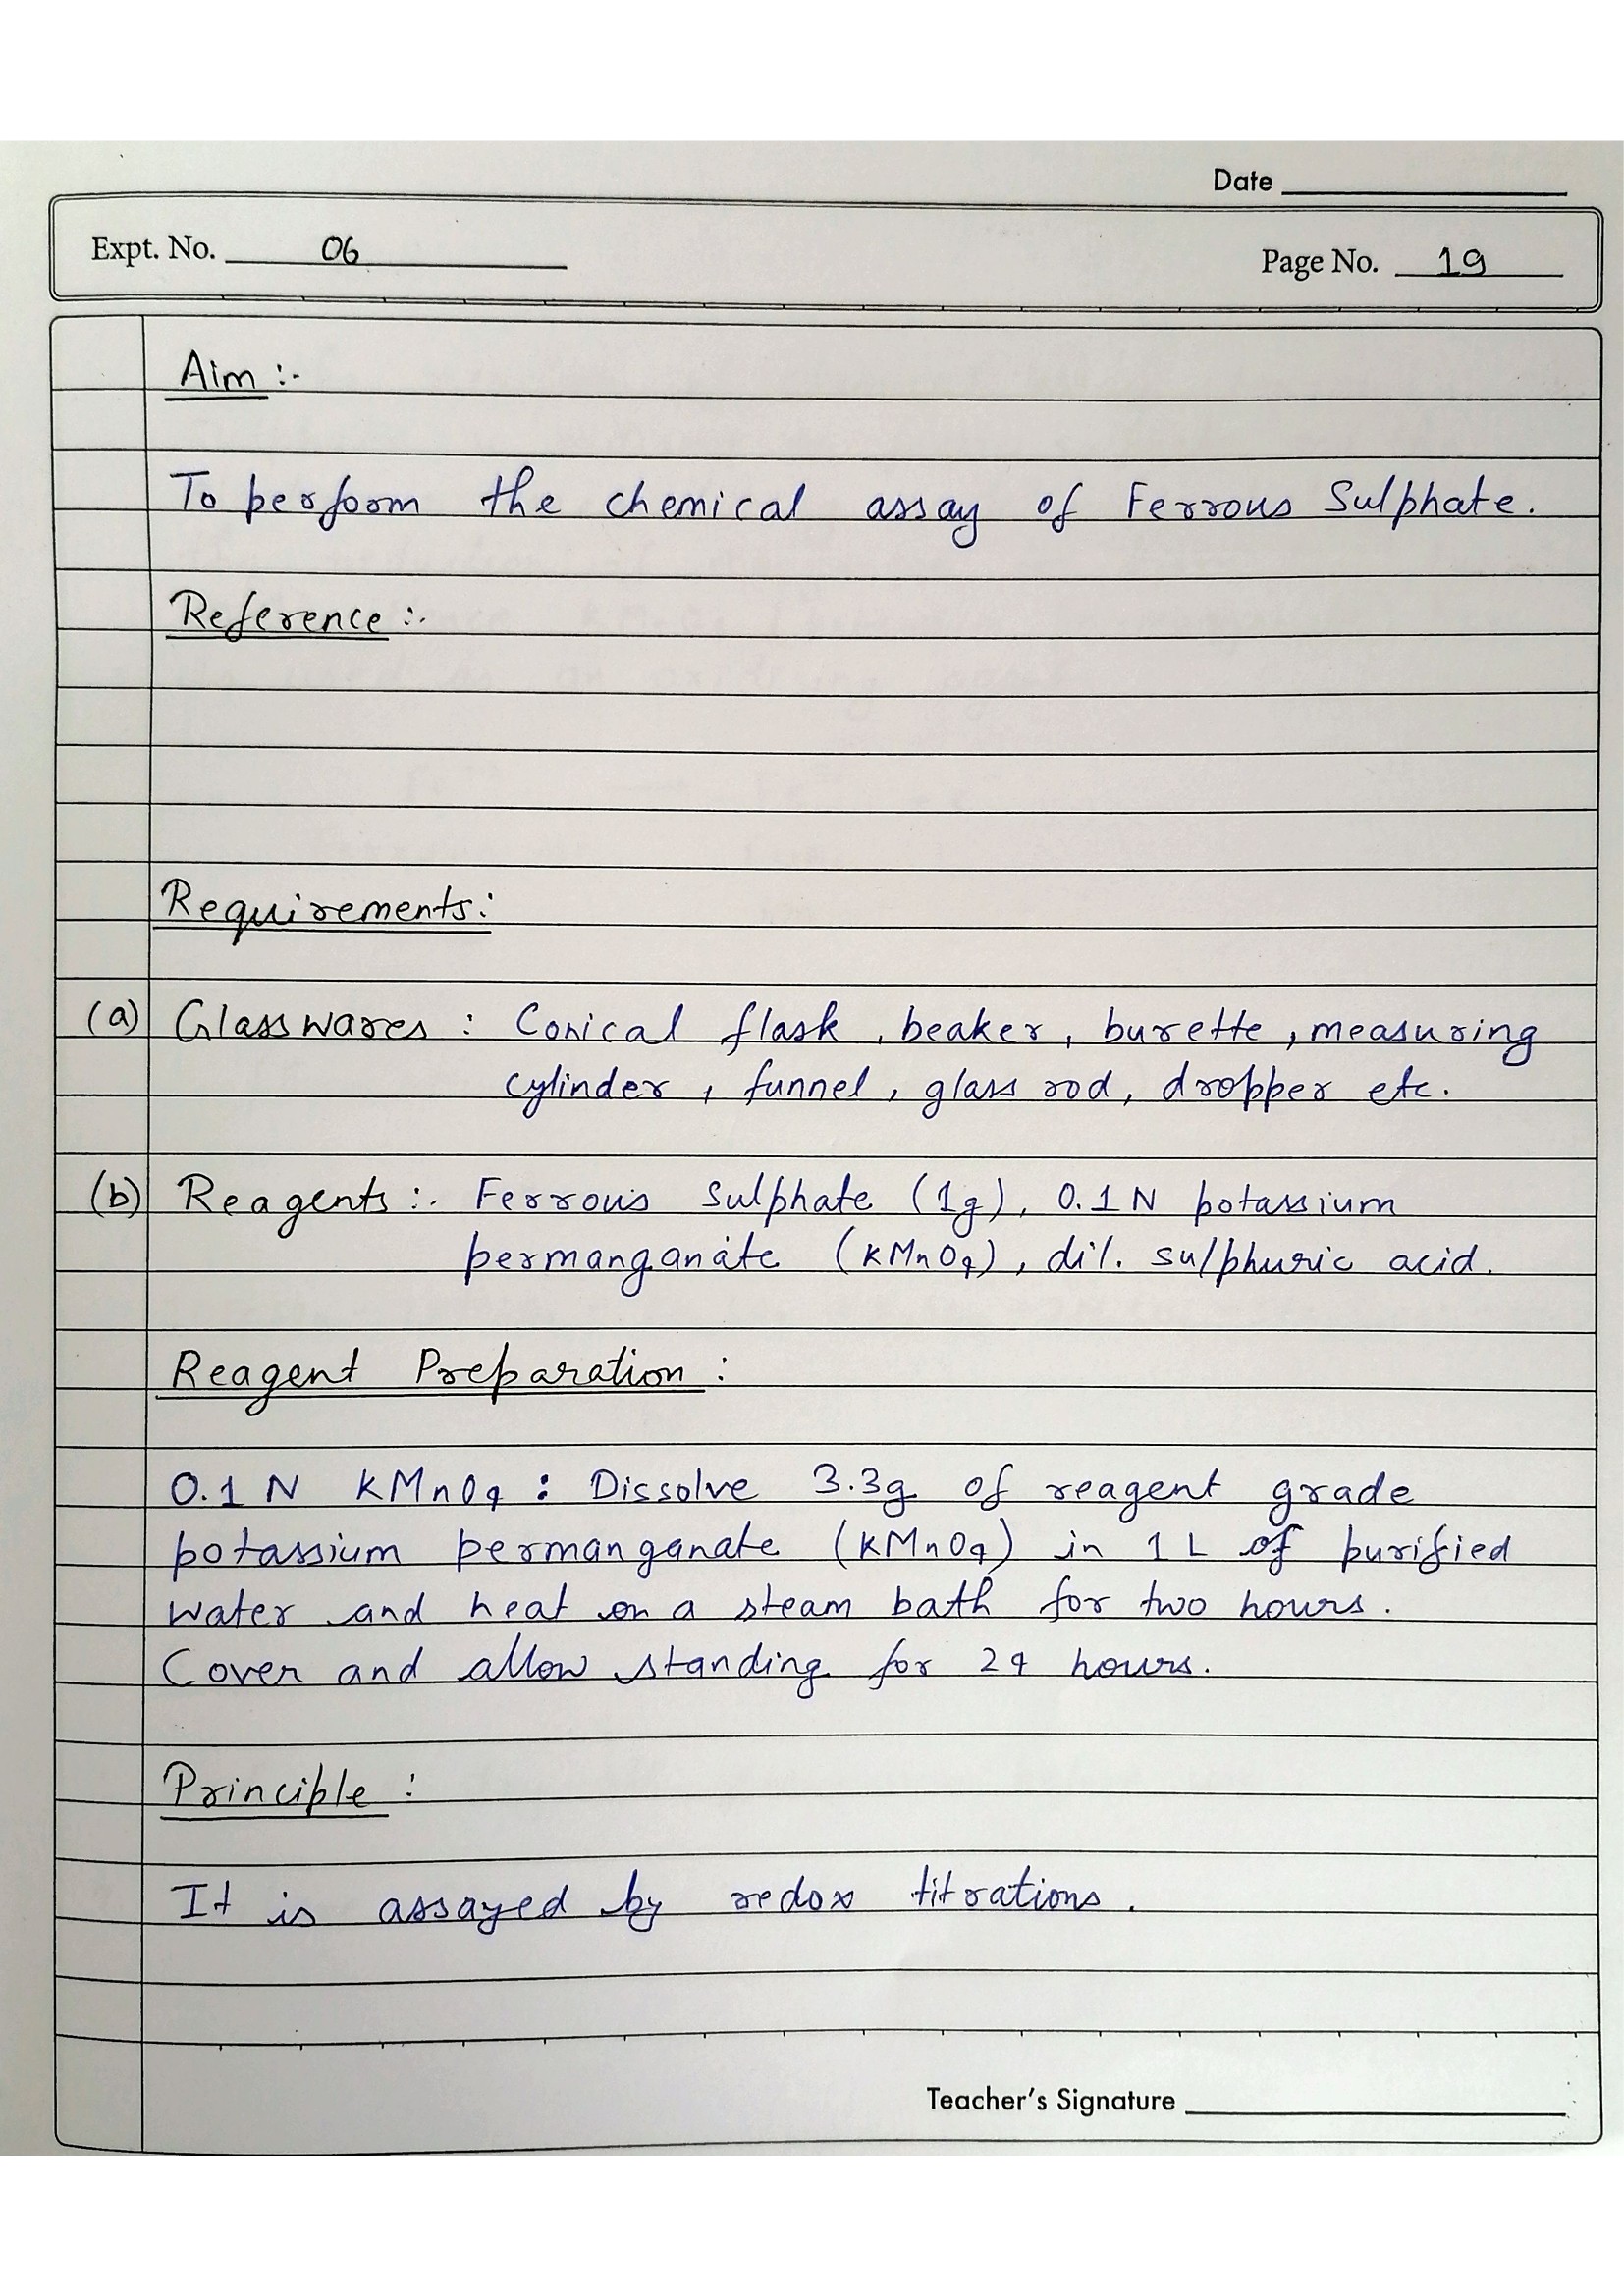 Date
Expt. No. 06
Page No. 19
Aim :-
To perform the chemical assay of Ferrous Sulphate.
Reference :-
Requirements:
(a) Glasswares : Conical flask, beaker, burette, measuring
cylinder, funnel, glass rod, dropper etc.
(b) Reagents :- Ferrous sulphate (1g), 0.1 N potassium
permanganate (KMnO4), dil. sulphuric acid.
Reagent Preparation :
0.1 N KMnO4 : Dissolve 3.3g of reagent grade
potassium permanganate (KMnO4) in 1 L of purified
water and heat on a steam bath for two hours.
Cover and allow standing for 24 hours.
Principle :
It is assayed by redox titrations.
Teacher's Signature